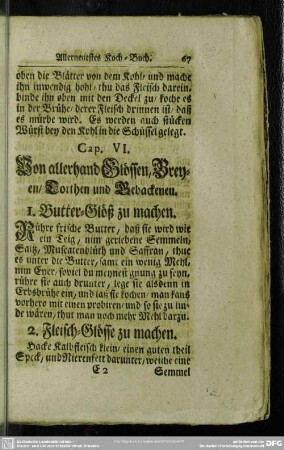 Allerneuestes Koch-Buch. 67
oben die Blätter von dem Kohl/ und mache
ihn inwendig hohl/ thu das Fleisch darein,
binde ihn oben mit den Deckel zu/ koche es
in der Brühe/ derer Fleisch drinnen ist/ daß
es mürbe werd. Es werden auch stücken
Würst bey den Kohl in die Schüssel gelegt.
Cap. VI.
Von allerhand Glössen, Brey-
en/ Torthen und Gebackenen.
1. Butter-Glöß zu machen.
Rühre frische Butter, daß sie wird wie
ein Teig, nim geriebene Semmeln,
Saltz, Muscatenblüth und Saffran, thue
es unter die Butter, samt ein wenig Mehl,
nim Eyer, soviel du meynest gnug zu seyn,
rühre sie auch drunter, lege sie alsdenn in
Erbsbrühe ein, und laß sie kochen/ man kans
vorhero mit einen probiren/ und so sie zu lin-
de wären, thut man noch mehr Mehl darzu.
2. Fleisch-Glösse zu machen.
Hacke Kalbfleisch klein/ einen guten theil
Speck, und Nierenfett darunter/ weiche eine
E 2 Semmel
DFG